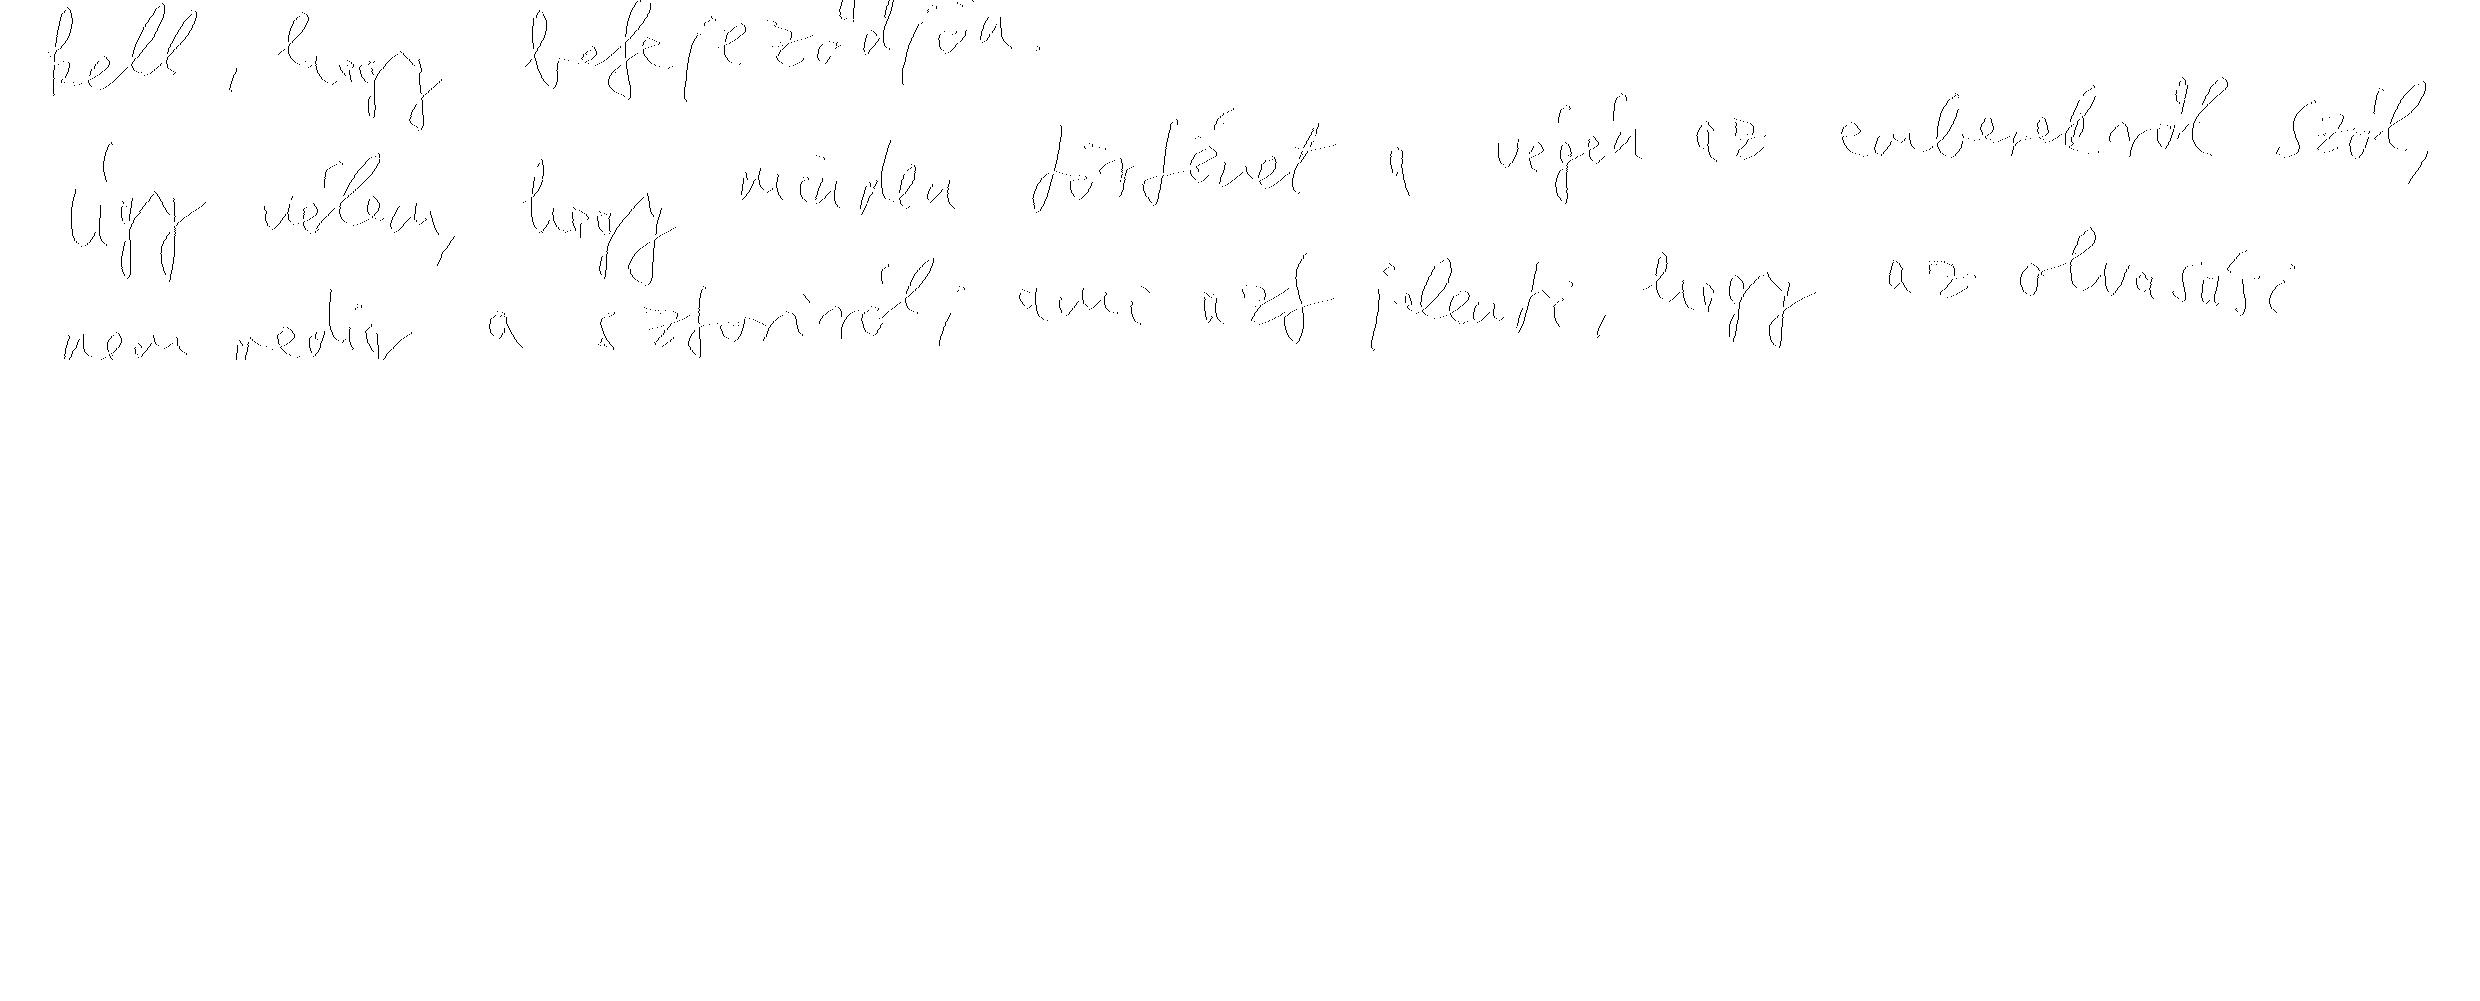 kell, hogy befejeződjön.
Úgy vélem, hogy minden történet a végén az emberekről szól,
nem pedig a sztoriról; ami azt jelenti, hogy az olvasási